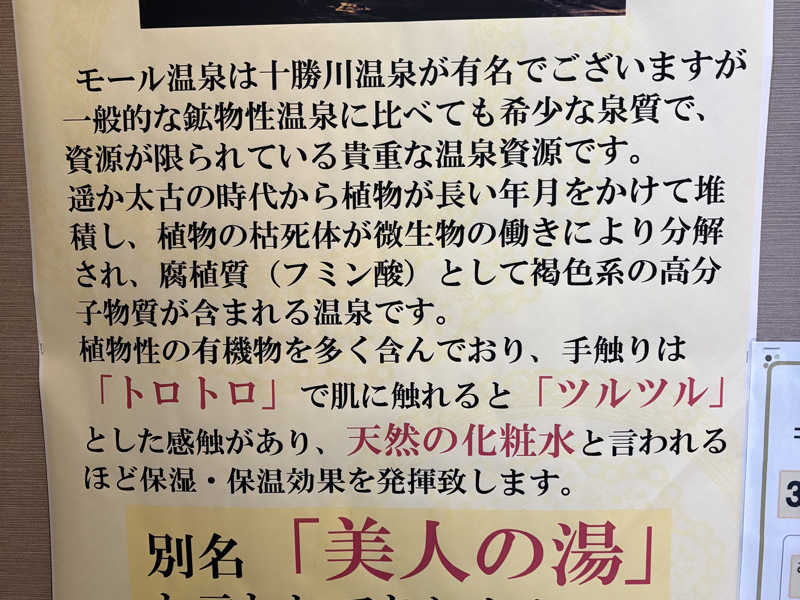 モール温泉は十勝川温泉が有名でございますが
一般的な鉱物性温泉に比べても希少な泉質で、
資源が限られている貴重な温泉資源です。
遥か太古の時代から植物が長い年月をかけて堆
積し、植物の枯死体が微生物の働きにより分解
され、腐植質（フミン酸）として褐色系の高分
子物質が含まれる温泉です。
植物性の有機物を多く含んでおり、手触りは
「トロトロ」で肌に触れると「ツルツル」
とした感触があり、天然の化粧水と言われる
ほど保湿・保温効果を発揮致します。
別名「美人の湯」
3